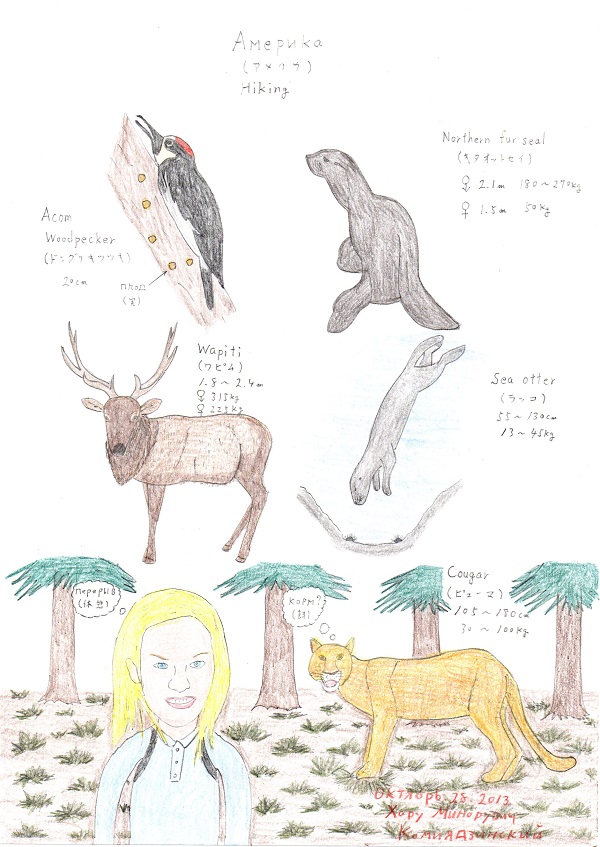 Америка
(アメリカ)
Hiking
Northern fur seal
(キタオットセイ)
♀ 2.1m 180～270kg
♀ 1.5m 50kg
Acorn
Woodpecker
(ドングリキツツキ)
20cm
плод
(実)
Wapiti
(ワピチ)
1.8～2.4m
♀ 315kg
♀ 225kg
Sea otter
(ラッコ)
55～130cm
13～45kg
перерыв
(休憩)
корм?
(餌)
Cougar
(ピューマ)
105～180cm
30～100kg
октябрь 25. 2013
Хору Минорувич
Комиядзинский